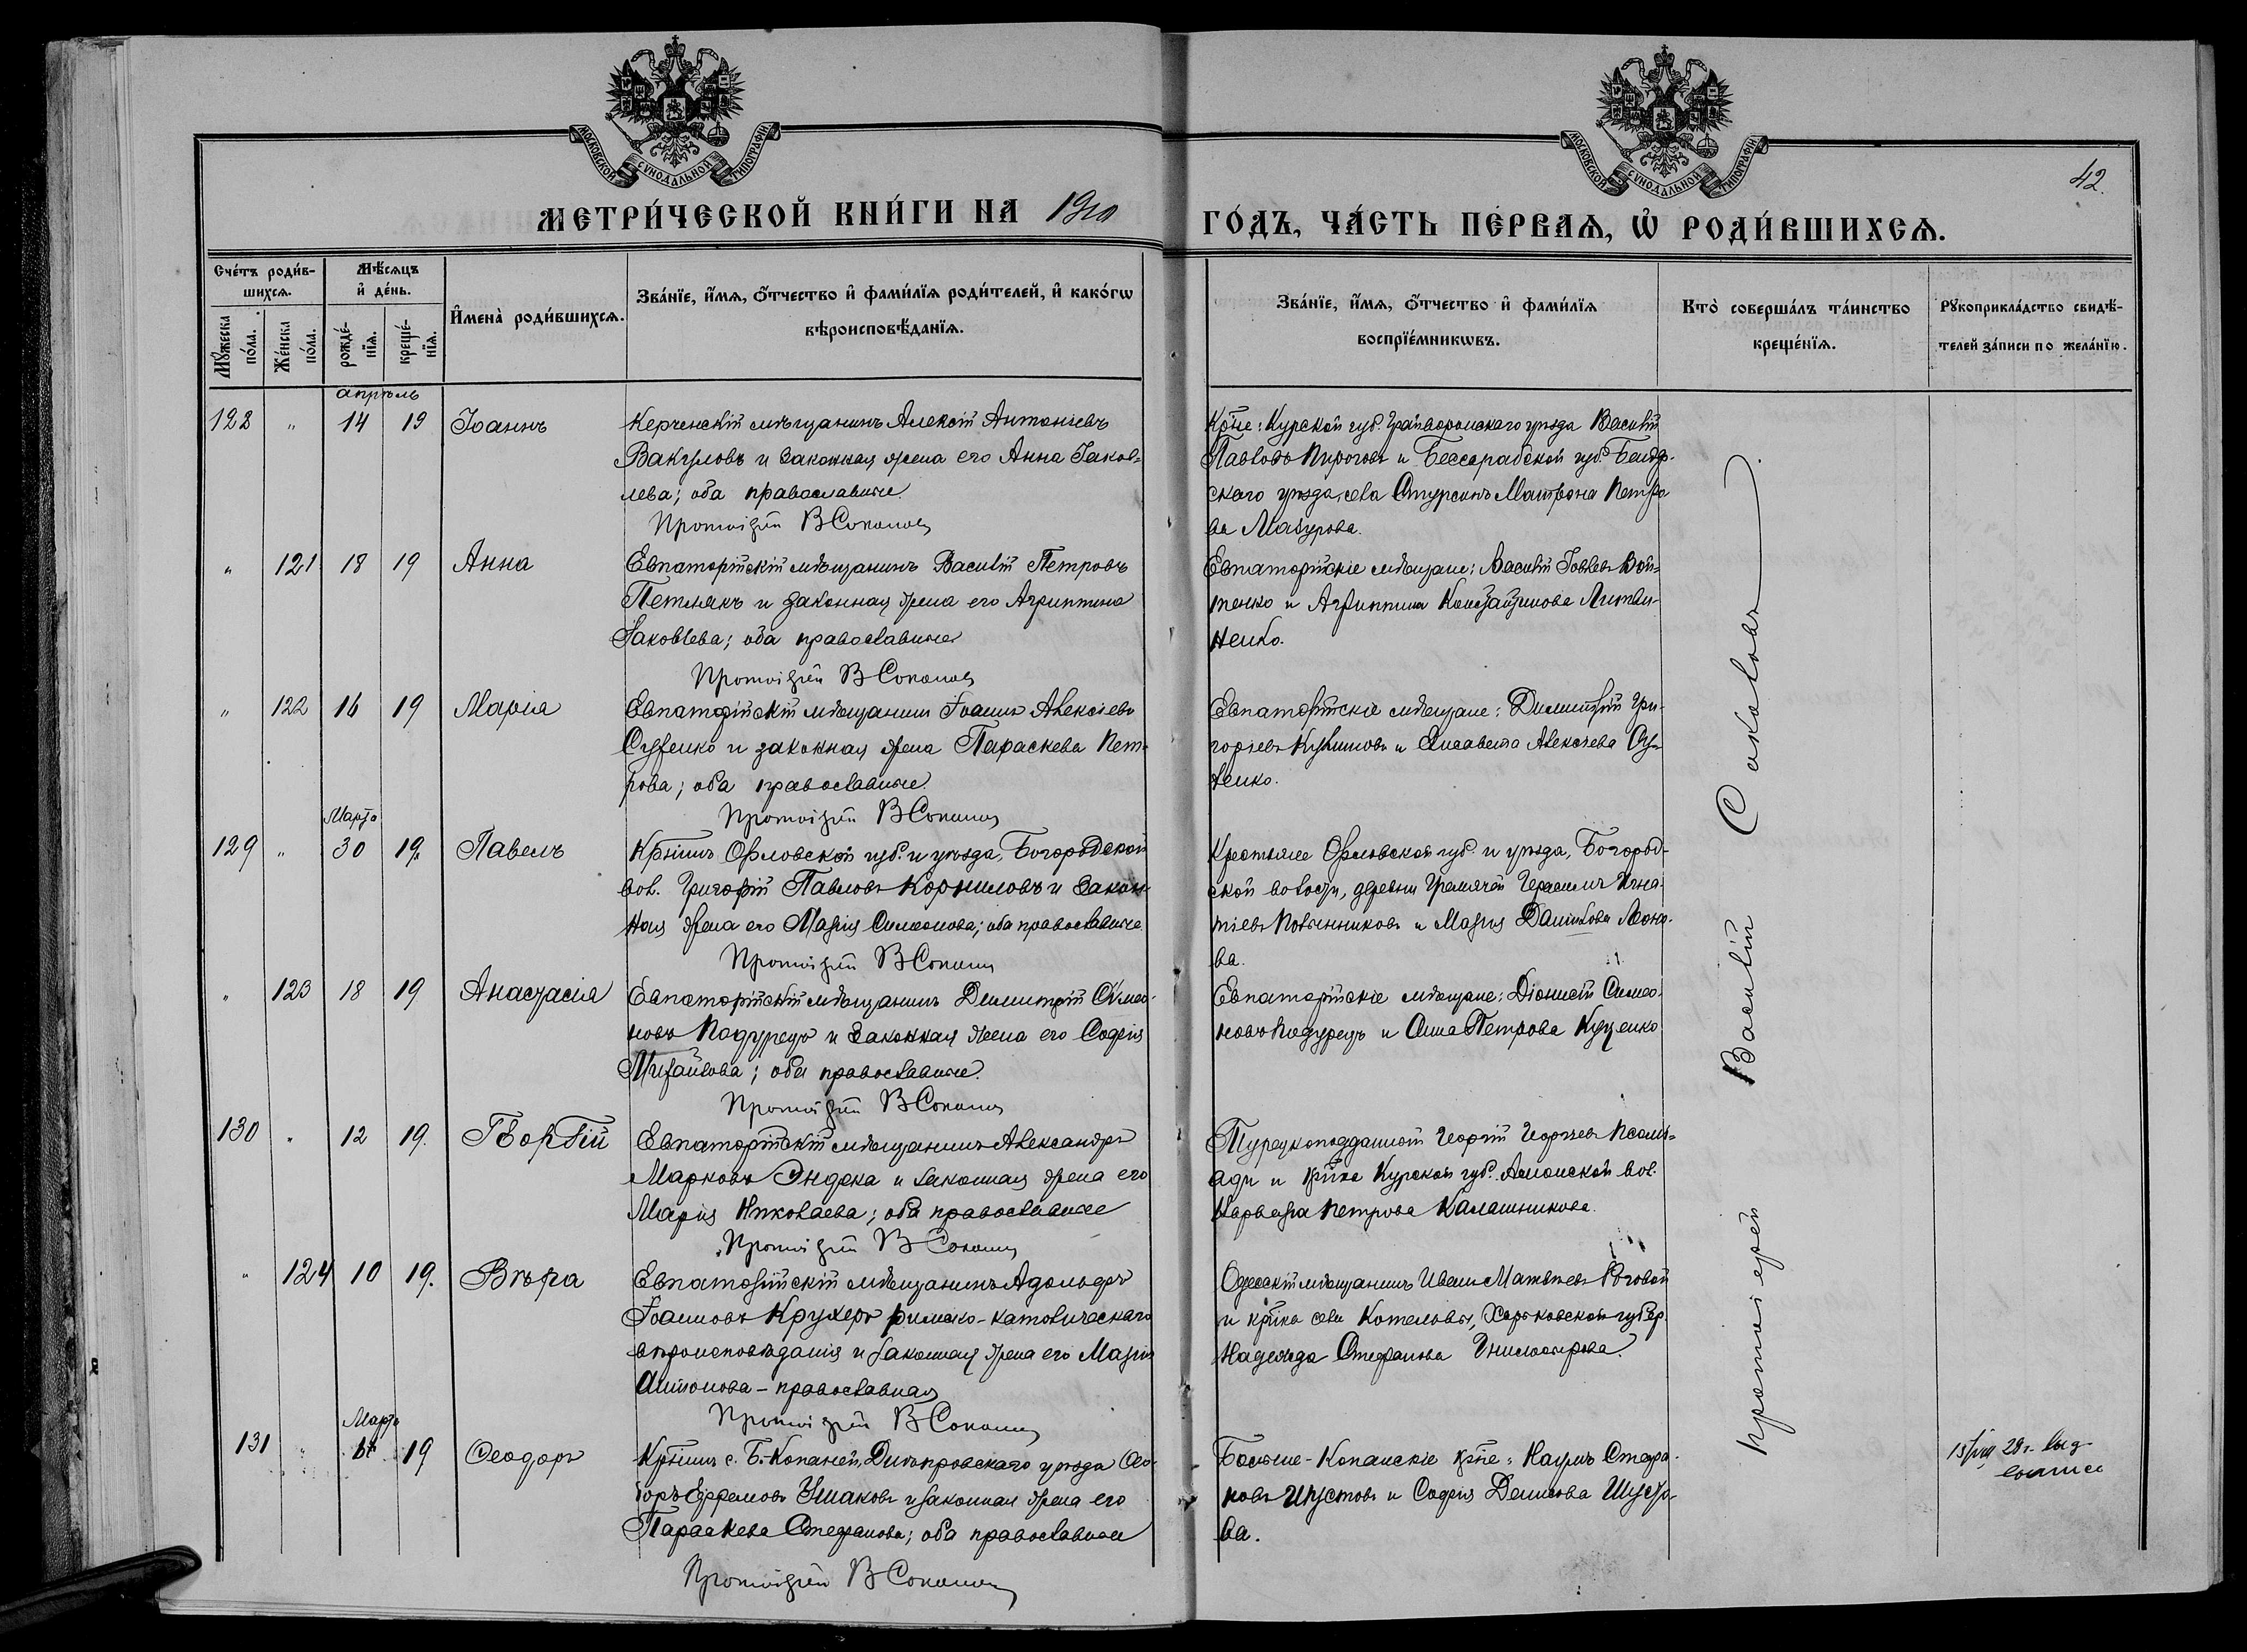 МОСКОВСКОЙ СѴНОДАЛЬНОЙ ТИПОГРАФІИ
МОСКОВСКОЙ СѴНОДАЛЬНОЙ ТИПОГРАФІИ
42.
МЕТРИ́ЧЕСКОЙ КНИ́ГИ НА 1910 ГО́ДЪ, ЧА́СТЬ ПЕ́РВАѦ, Ѽ РОДИ́ВШИХСѦ.
Сче́тъ роди́в-
шихсѧ.
Мѹ́жеска по́ла.
Же́нска по́ла.
Мѣ́сѧцъ и҆ де́нь.
рожде́-нїѧ.
креще́-нїѧ.
И҆мена̀ роди́вшихсѧ.
Зва́нїе, и҆́мѧ, ѻ҆́тчество и҆ фами́лїѧ роди́телей, и҆ како́гѡ
вѣроисповѣ́данїѧ.
Зва́нїе, и҆́мѧ, ѻ҆́тчество и҆ фами́лїѧ
воспрїе́мникѡвъ.
Кто̀ соверша́лъ та́инство
креще́нїѧ.
Рѹкоприкла́дство свидѣ́-
телей за́писи по жела́нїю.
апрѣль
128 " 14 19 Іоаннъ
Керченскій мѣщанинъ Алексій Антоніевъ
Вакуловъ и законная жена его Анна Іаков=
лева; оба православные.
Протоіерей В Соколовъ
Кр-не: Курской губ. Грайворонскаго уѣзда Василій
Павловъ Пироговъ и Бессарабской губ. Бендер-
скаго уѣзда, села Матрона Петро
ва Мазурова.
" 121 18 19 Анна
Евпаторійскій мѣщанинъ Василій Петровъ
Петлякъ и законная жена его Агриппина
Іаковлева; оба православные
Протоіерей В Соколовъ
Евпаторійскіе мѣщане: Василій Іовлевъ Вой=
тенко и Агриппина Константинова Литви-
ненко.
" 122 16 19 Марія
Евпаторійскій мѣщанинъ Іоаннъ Алексіевъ
и законная жена Параскева Пет-
рова; оба православные.
Протоіерей В Соколовъ
Евпаторійскіе мѣщане: Димитрій Гри-
горіевъ и Елисавета Алексіева
ленко.
Марта
129 " 30 19. Павелъ
Кр-нинъ Орловской губ. и уѣзда, Богородской
вол. Григорій Павловъ Корниловъ и закон-
ная жена его Марія Симеонова; оба православные.
Протоіерей В Соколовъ
Крестьяне Орловской губ. и уѣзда, Богород-
ской волости, деревни Гремячей Герасимъ Игна-
тіевъ и Марія Даниилова Леоно-
ва.
" 123 18 19 Анастасія
Евпаторійскій мѣщанинъ Димитрій Симео-
новъ Подгурецъ и законная жена его Софія
Михайлова; оба православные.
Протоіерей В Соколовъ
Евпаторійскіе мѣщане: Діонисій Симео-
новъ Подгурецъ и Анна Петрова Куценко
130 " 12 19. Георгій
Евпаторійскій мѣщанинъ Александръ
Марковъ Эндека и законная жена его
Марія Николаева; оба православные
Протоіерей В Соколовъ
Турецкоподданный Георгій Георгіевъ
ади и кр-нка Курской губ. вол.
Варвара Петрова Калашникова.
" 124 10 19. Вѣра
Евпаторійскій мѣщанинъ Адольфъ
Іоанновъ Крухеръ римско-католическаго
вѣроисповѣданія и законная жена его Марія
Антонова - православная
Протоіерей В Соколовъ
Одесскій мѣщанинъ Иванъ Матвѣевъ Роговой
и кр-нка села Котельвы, Харьковской губер.
Надежда Стефанова
Марта
131 " 19 Ѳеодоръ
Кр-нинъ с. Б.-Копаней, Днѣпровскаго уѣзда Ѳео-
доръ Ефремовъ Ушаковъ и законная жена его
Параскева Стефанова; оба православные
Протоіерей В Соколовъ
Больше-Копанскіе кр-не: Наумъ Стефа-
новъ Шустовъ и Софія Денисова Шусто-
ва.
Протоіерей Василій Соколовъ